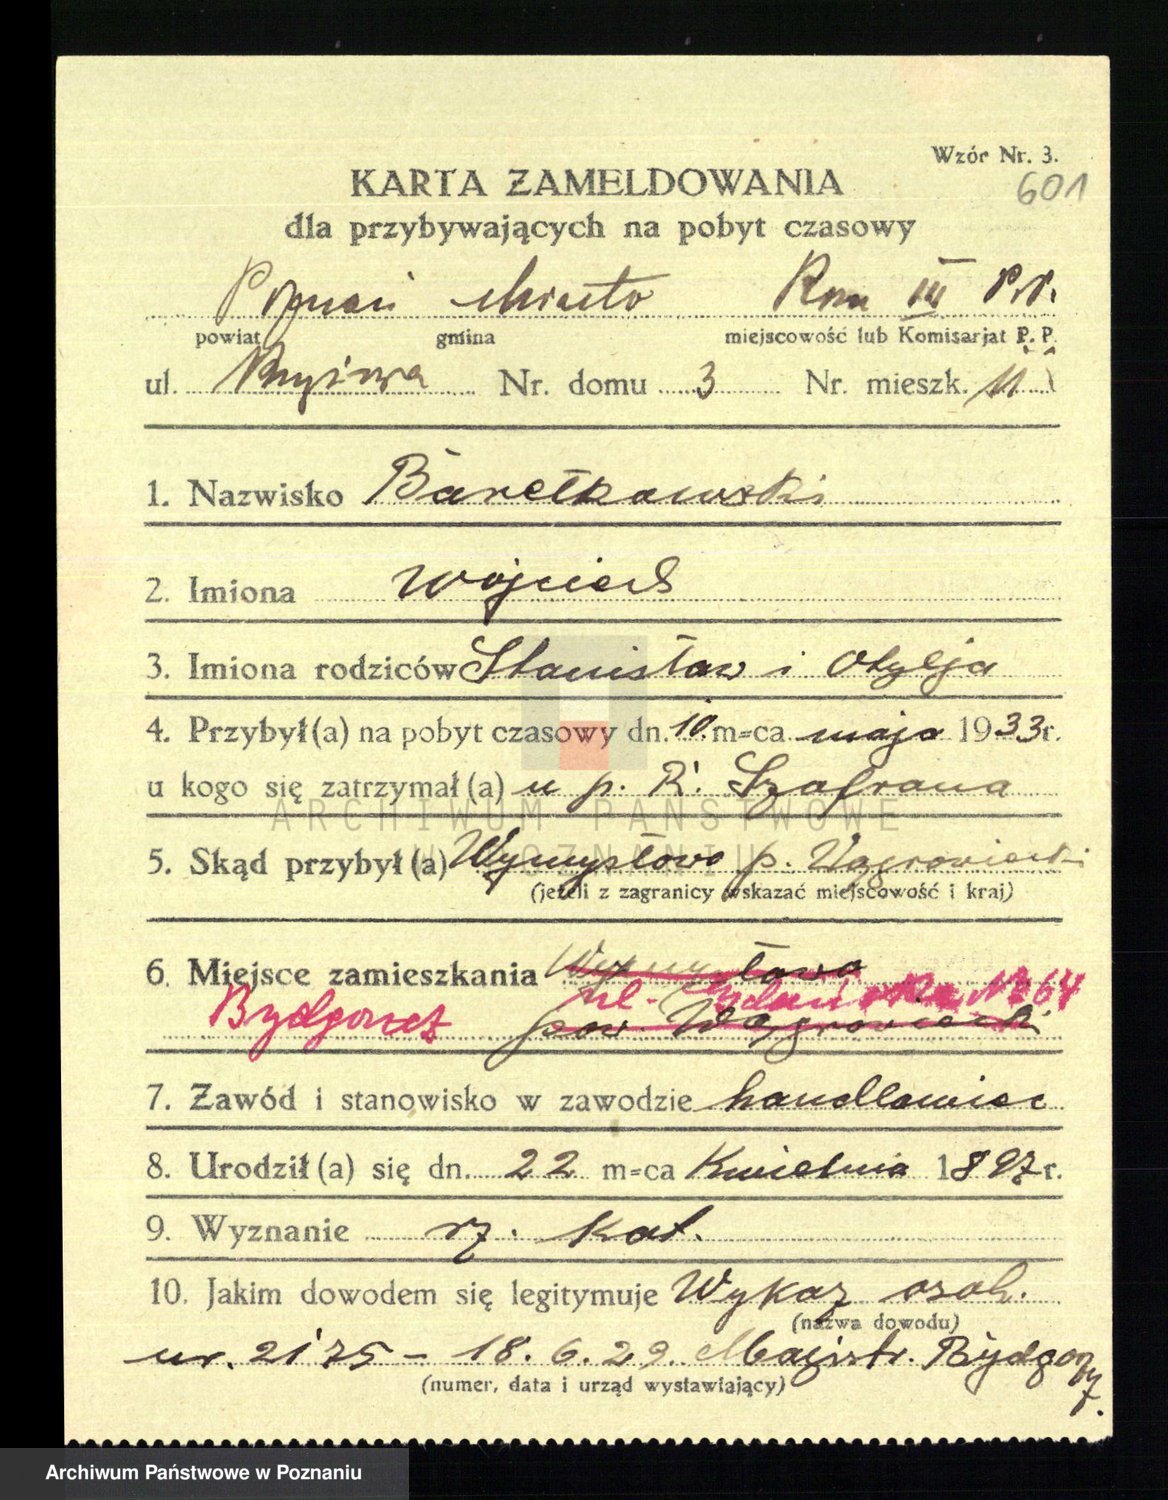 Wzór Nr. 3.
601
KARTA ZAMELDOWANIA
dla przybywających na pobyt czasowy
Poznań Miasto Kom III P.P.
powiat gmina miejscowość lub Komisarjat P. P.
ul. Nr. domu 3 Nr. mieszk. 11
1. Nazwisko Barełkowski
2. Imiona Wojciech
3. Imiona rodziców Stanisław i Otylja
4. Przybył(a) na pobyt czasowy dn. 10 m=ca maja 1933 r.
u kogo się zatrzymał(a) u p. R. Szafrana
5. Skąd przybył(a) Wymysłowo p. Wągrowiecki
(jeżeli z zagranicy wskazać miejscowość i kraj)
6. Miejsce zamieszkania Wymysłowo
ul. Gdańska No 64
Bydgoszcz pow. Wągrowiecki
7. Zawód i stanowisko w zawodzie handlowiec
8. Urodził(a) się dn. 22 m=ca Kwietnia 1897 r.
9. Wyznanie rz. kat.
10. Jakim dowodem się legitymuje Wykaz osob.
(nazwa dowodu)
nr. 2175 – 18.6.29. Magistr. Bydgoszcz.
(numer, data i urząd wystawiający)
ARCHIWUM PAŃSTWOWE
W POZNANIU
Archiwum Państwowe w Poznaniu